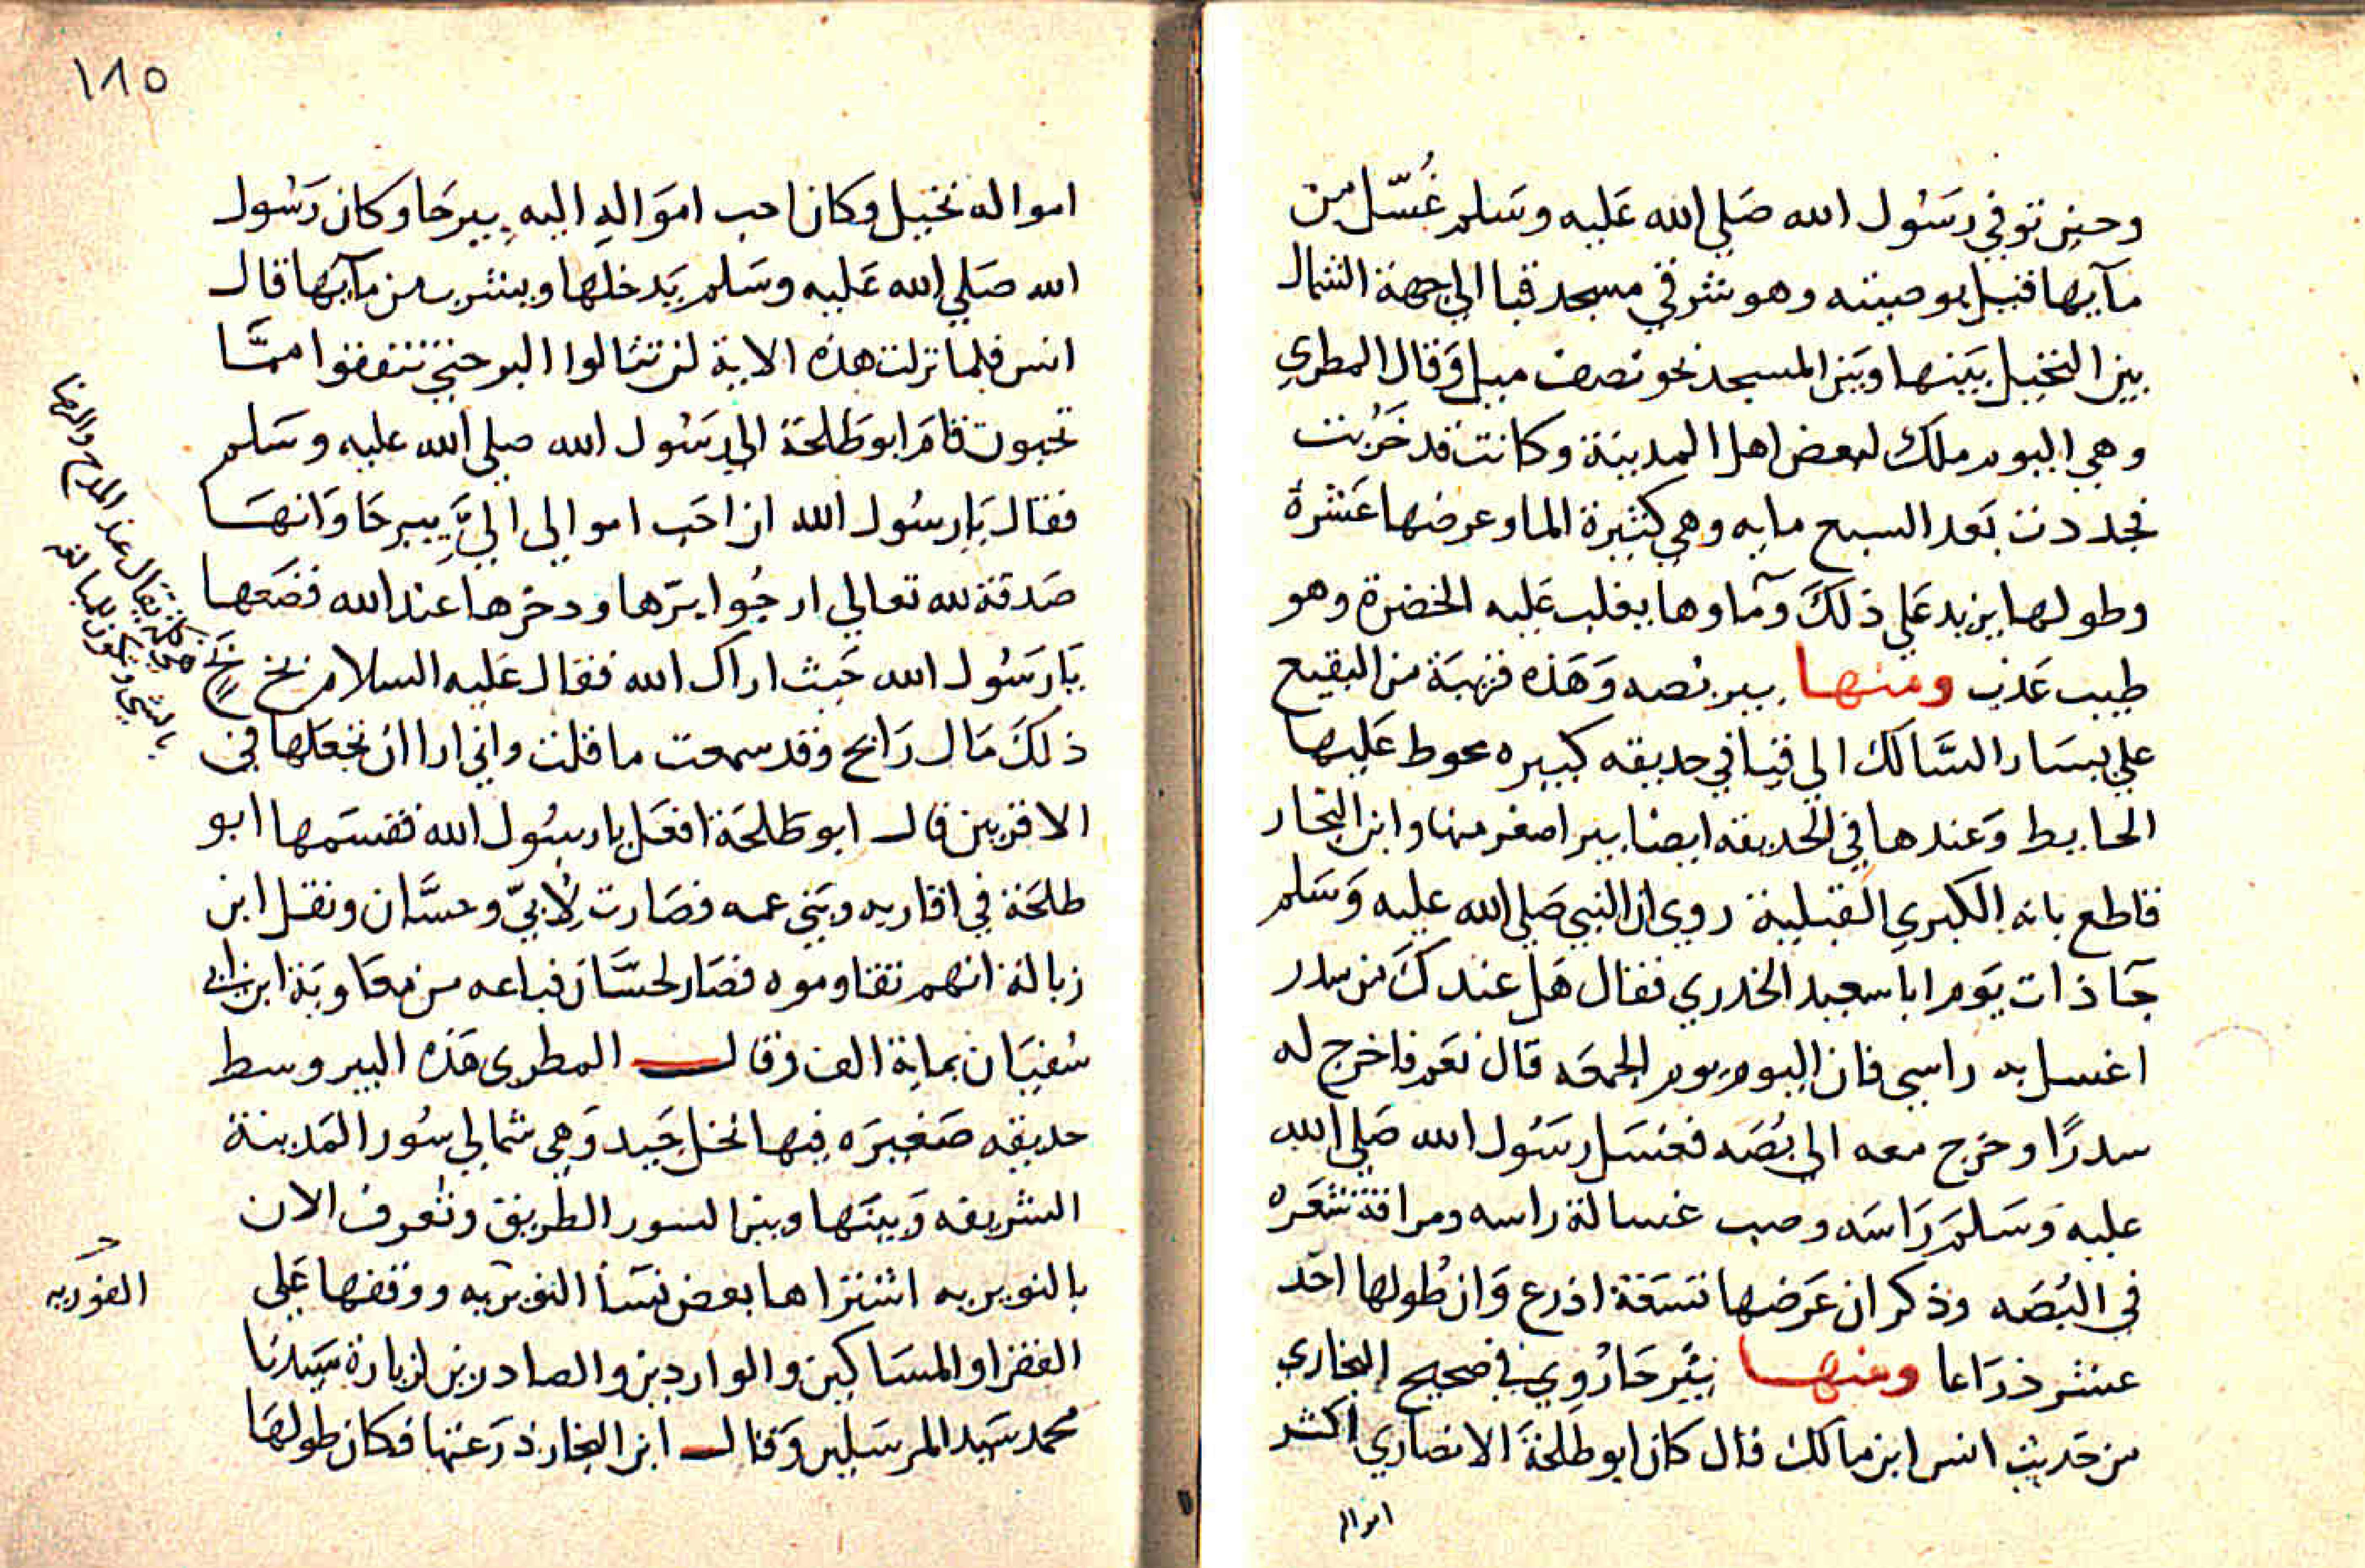 وحين توفي رسول الله صلي الله عليه وسلم غُسّل من
مآيها قيل بوصيته وهو شرقي مسجد قبا الي جهة الشمال
بين النخيل بينها وبين المسجد نحو نصف ميل وقال المطري
وهي اليوم ملك لبعض اهل المدينة وكانت قد خربت
فجددت بعد السبع مايه وهي كثيرة الما وعرضها عشرة
وطولها يزيد علي ذلك ومآوها يغلب عليه الخضرة وهو
طيب عذب ومنها بير بصه وهذه قريبة من البقيع
علي يسار السالك الي قبا في حديقه كبيره محوط عليها
الحايط وعندها في الحديقه ايضا بير اصغر منها وابن النجار
قاطع بانه الكبري القبلية روي ان النبي صلي الله عليه وسلم
جآ ذات يوم ابا سعيد الخدري فقال هل عندك من سدر
اغسل به راسي فان اليوم يوم الجمعه قال نعم فاخرج له
سدرًا وخرج معه الي بُصَه فغسل رسول الله صلي الله
عليه وسلم راسه وصب غسالة راسه ومراقة شعره
في البُصَه وذكر ان عرضها تسعة اذرع وان طولها احد
عشر ذراعا ومنها بئر حا رُوي في صحيح البخاري
من حديث انس ابن مالك قال كان ابو طلحة الانصاري اكثر
امواله
١٨٥
امواله نخيل وكان احب امواله اليه بيرحا وكان رسول
الله صلي الله عليه وسلم يدخلها ويشرب من مآيها قال
انس فلما نزلت هذه الاية لن تنالوا البر حتي تنفقوا ممّا
تحبون قام ابو طلحة الي رسول الله صلي الله عليه وسلم
فقال يا رسول الله ان احب اموالي اليَّ بيرحا وانها
صدقة لله تعالي ارجُوا برّها ودخرها عند الله فضعها
يا رسول الله حيث اراك الله فقال عليه السلام بخ بخ
ذلك مال رابح وقد سمعت ما قلت واني ارا ان تجعلها في
الاقربين قال ابو طلحة افعل يا رسول الله فقسمها ابو
طلحة في اقاربه وبني عمه فصارت لأبيّ وحسّان ونقل ابن
زبالة انهم تقاوموه فصار لحسّان فباعه من معاوية ابن ابي
سفيان بماية الف وقال المطري هذه البير وسط
حديقه صغيره فيها نخل جيد وهي شمالي سُور المدينة
الشريفه وبينها وبين السور الطريق وتُعرف الان
بالنويريه اشتراها بعض نسآ النويريه ووقفها علي
الفقرا والمساكين والواردين والصادرين لزيارة سيدنا
محمد سيد المرسلين وقال ابن النجار ذرعتها فكان طولها
هي كلمة تقال عند المدح والرضا
بالشي وتكون للمبالغه